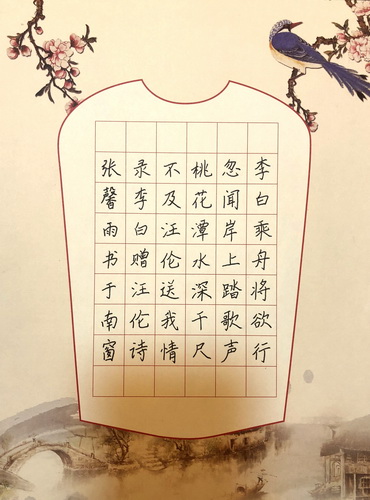 李白乘舟将欲行
忽闻岸上踏歌声
桃花潭水深千尺
不及汪伦送我情
录李白赠汪伦诗
张馨雨书于南窗